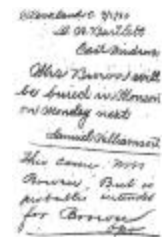 Cleveland O.
W. A. Bartlett
East Andover
Mrs Burrows will
be buried in Monson
on Monday next
Samuel Williamson
This came Mrs
But is
probably intended
for
Opr